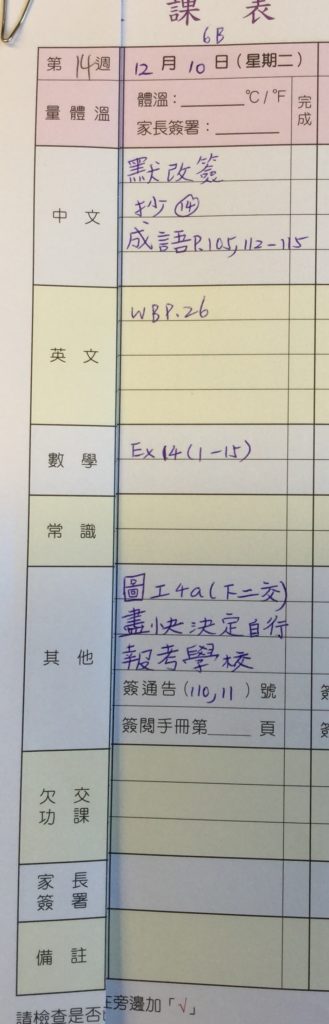 課 表
6B
第 14 週 12 月 10 日 (星期二)
量體溫 體溫：______℃/℉ 完成
家長簽署：______
中 文 默改簽
抄 ⑭
成語P.105,112-115
英 文 WBP.26
數 學 Ex 14(1-15)
常 識
其 他 圖工4a(下二交)
盡快決定自行
報考學校
簽通告(110,11)號
簽閱手冊第____頁
欠 交
功 課
家 長
簽 署
備 註
請檢查是否
在旁邊加「√」